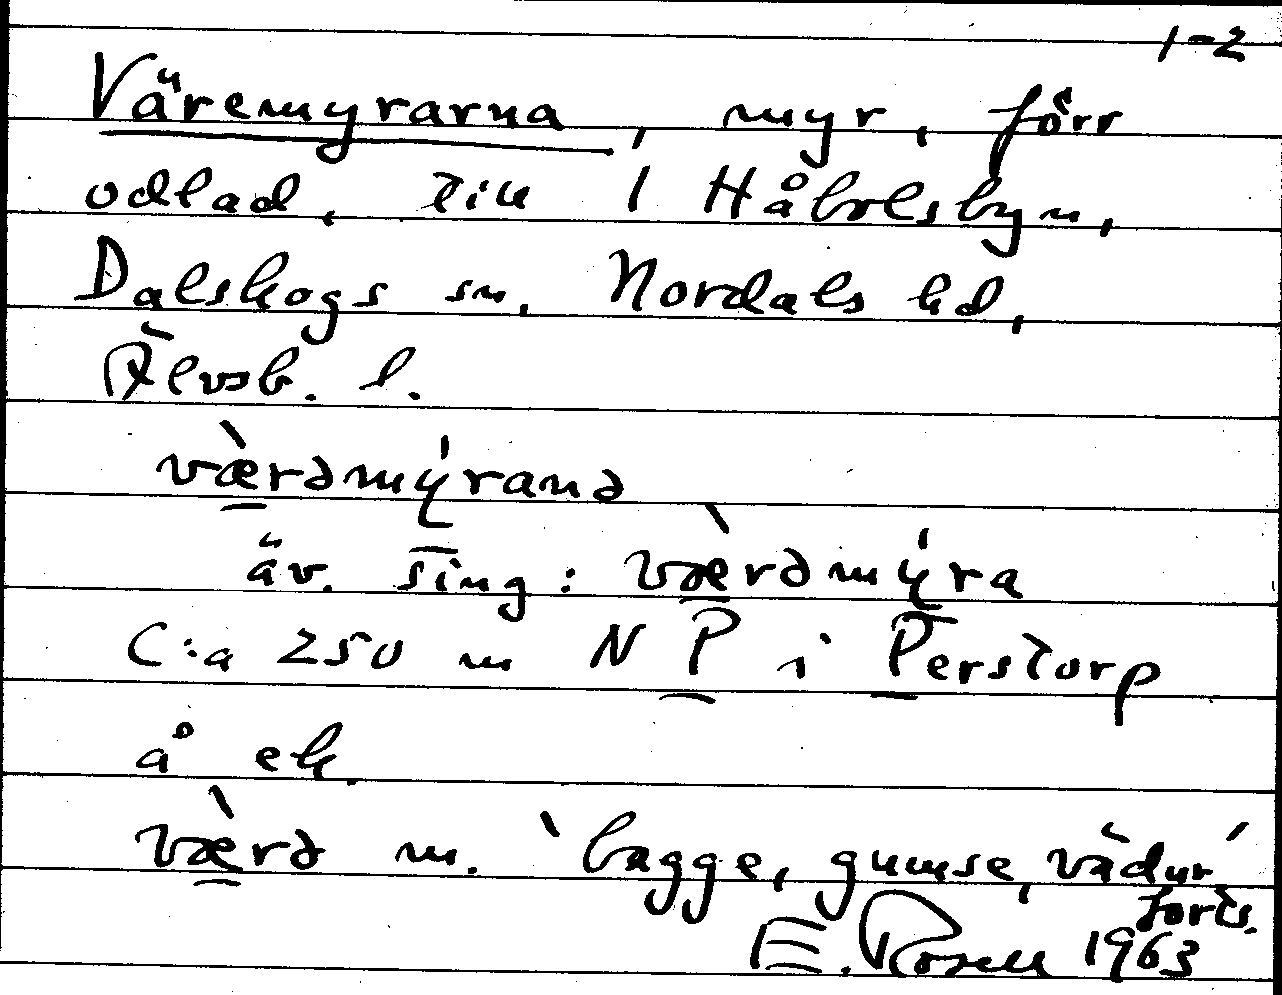 1-2
Väremyrarna, myr, förr
odlad, till 1 Håbolsbyn,
Dalskogs sn, Nordals hd,
Älvsb. l.
væ̀rəmý̨ranə
äv. sing: væ̀rəmý̨ra
C:a 250 m N P i Perstorp
å ek.
væ̀rə m. `bagge, gumse, vädur´
forts.
E. Rosell 1963